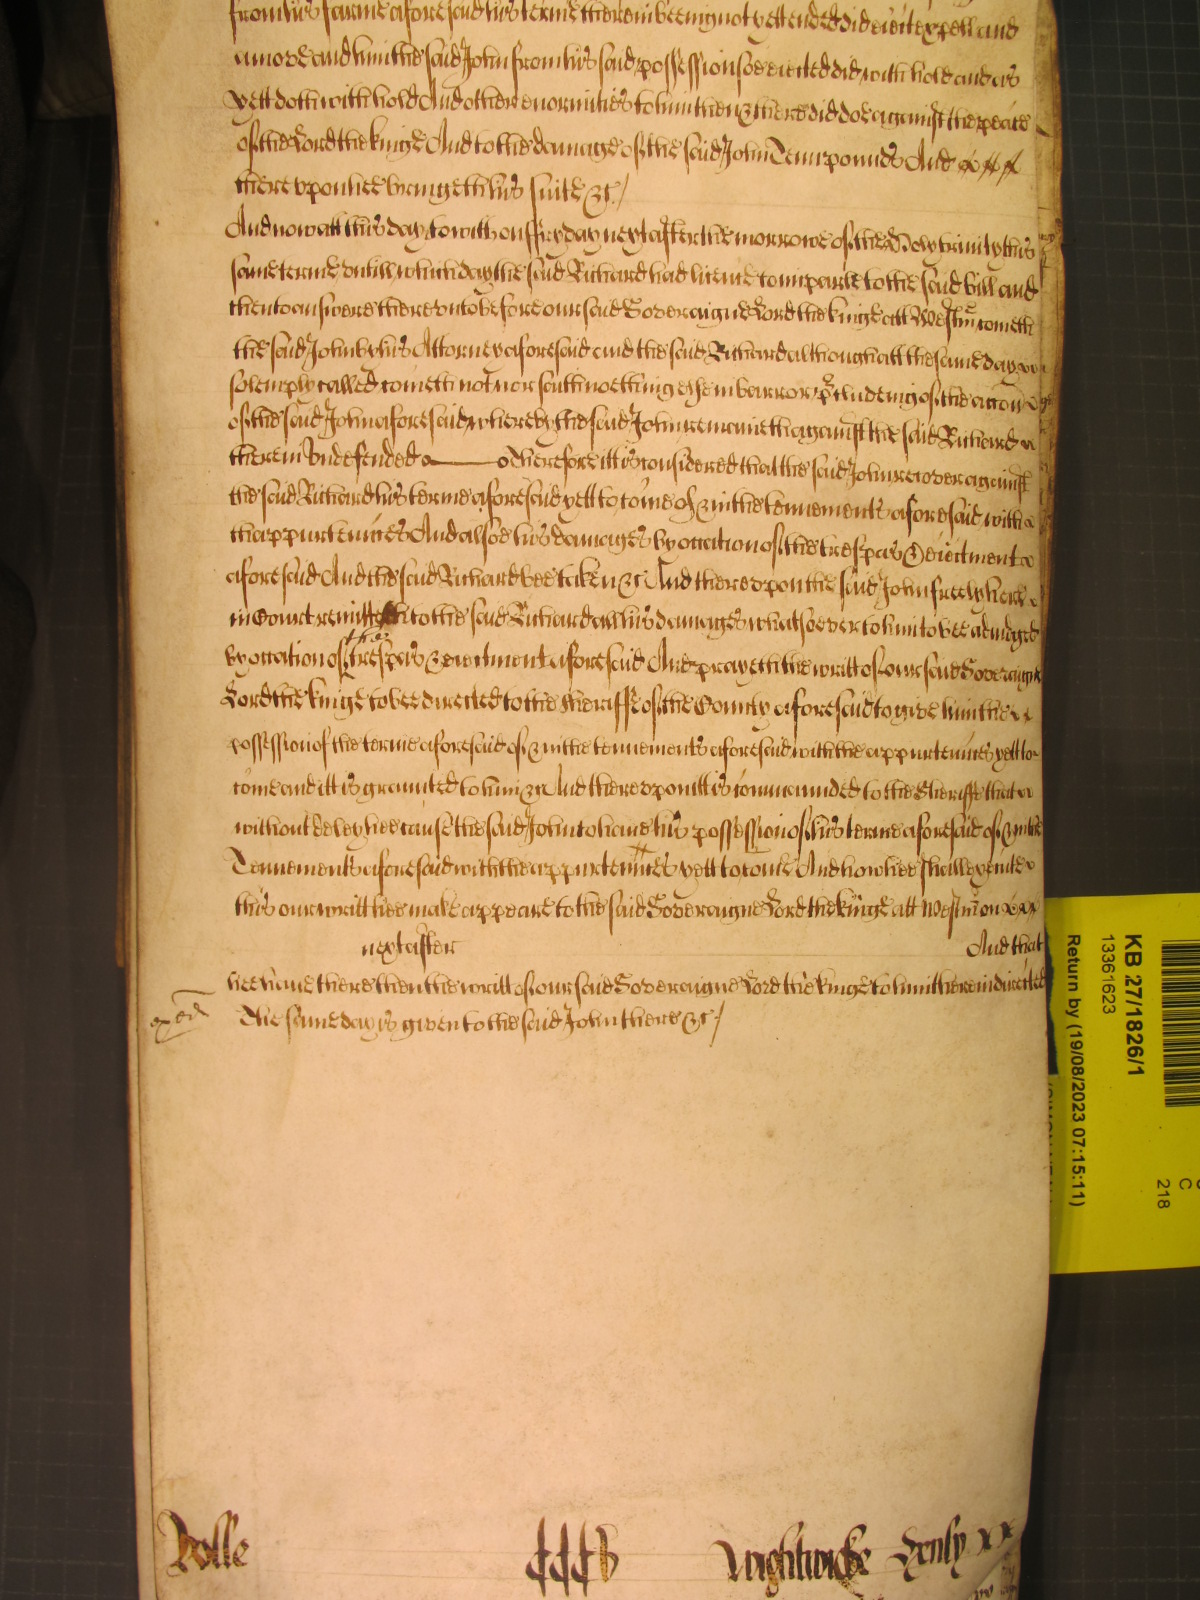 from his farme aforesaid his terme therein beeing not yett ended did eiect expell and
amove and him the said John from his said possession soe eiected did with hold and as
yett doth with hold And other enormities to him then & there did doe against the peace
of the Lord the kinge And to the damage of the said John Tenn pounds And
thereupon hee bringeth his suite &c /
And now att this day to with on ffryday next after the morrowe of the Holy trinity this
same terme untill which day the said Richard had licence to imparle to the said bill and
then to answere thereunto before our said Soveraigne Lord the kinge att Westm cometh
the said John by his Attorney aforesaid and the said Richard although att the same day
solemply called cometh not nor saith nothinge in barr or p̱cludeing of the accon
of the said John aforesaid whereby the said John remaineth against the said Richard
therein Undefended Therefore itt is considered that the said John recover against
the said Richard his terme aforesaid yett to come of & in the tennements aforesaid with
thappurtenñces And alsoe his damages by occation of the trespas & eiectment
aforesaid And the said Richard bee taken &c And thereupon the said John freely here
in Court remitteth to the said Richard all his damages whatsoever to him to bee adiudged
by occation of the trespas & eiectment aforesaid And prayeth the writt of our said Soveraigne
Lord the kinge to bee directed to the sheriffe of the County aforesaid to give him the
possession of the terme aforesaid of & in the tennements aforesaid with the appurtenñces yett to
come and itt is graunted to him &c And thereupon itt is commaunded to the Sheriffe that
without delay hee cause the said John to have his possession of his terme aforesaid of & in the
Tennements aforesaid with the appurtenñces yett to come And how hee shall execute
this our writt hee make appeare to the said Soveraigne Lord the kinge att Westm on
next after And that
hee have there then the writt of our said Soveraigne Lord the kinge to him therein directed
The same day is given to the said John there &c /
Rolle Wightwicke
KB 27/1826/1
13361623
Return by (19/08/2023 07:15:11)
C
218